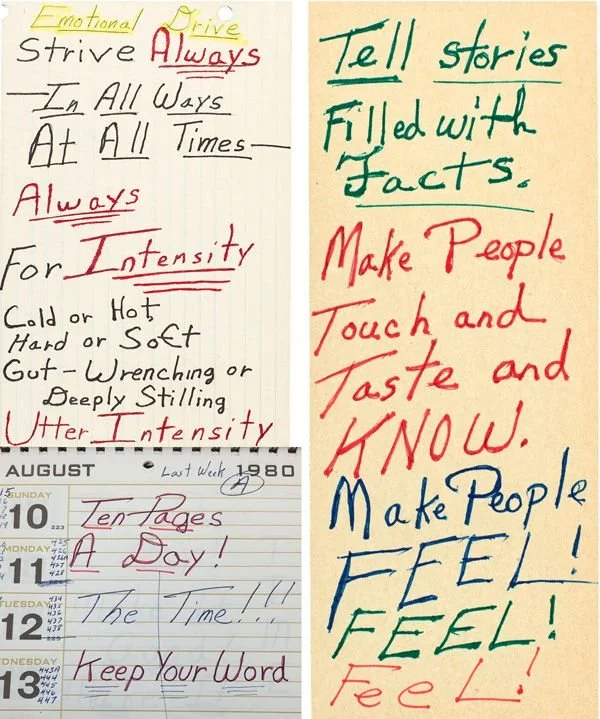 Emotional Drive
Strive Always
—In All Ways
At All Times—
Always
For Intensity
Cold or Hot,
Hard or Soft
Gut-Wrenching or
Deeply Stilling
Utter Intensity
AUGUST Last Week 1980
A
SUNDAY
10 223
Ten Pages
MONDAY
11
A Day!
425
426
427
428
TUESDAY
12 225
The Time!!!
434
435
436
437
438
DNESDAY
13
Keep Your Word
443A
444
445
446
447
Tell stories
Filled with
Facts.
Make People
Touch and
Taste and
KNOW.
Make People
FEEL!
FEEL!
FeeL!